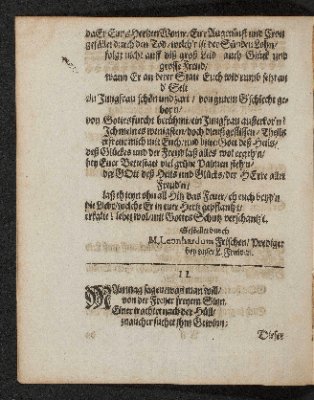 da Er Eurs Hertzen Wonn, Eur Augenlust und Kron
gefället durch den Tod, welch'r ist der Sünden Lohn/
folgt nicht auff diß groß Leid auch Glück und
grosse Freud/
wann Er an derer Statt Euch wid'rumb setzt an
d' Seit
ein Jungfrau schön und zart, von gutem G'schlecht ge-
bor'n/
von Gottesfurcht berühmt, ein Jungfrau außerkor'n!
Ich mein es wenigsten, doch dienstgeflissen, Theils
erfreue mich mit Euch, und bitte Gott deß Heils/
deß Glückes und der Freud laß alles wol ergeh'n/
bey Eurer Bettestatt viel grüne Palmen steh'n/
der GOtt deß Heils und Glücks, der HErre aller
Freud'n/
laß ohn all Hitz deß Feuer, euch beyd'n
die Lieb/ welche Er in eure Hertz gepflantzt,
lebet wol, mit Gottes Schutz verschantzt.
Gestellet durch
M. Leonhardum Frischen, Prediger
bey unser L. Frauen.
II.
MAn mag sagen, was man will/
von der Freyer freyem Sinn,
Einer trachtet nach der Hüll/
mancher suchet ihm Gewinn;
Dieser